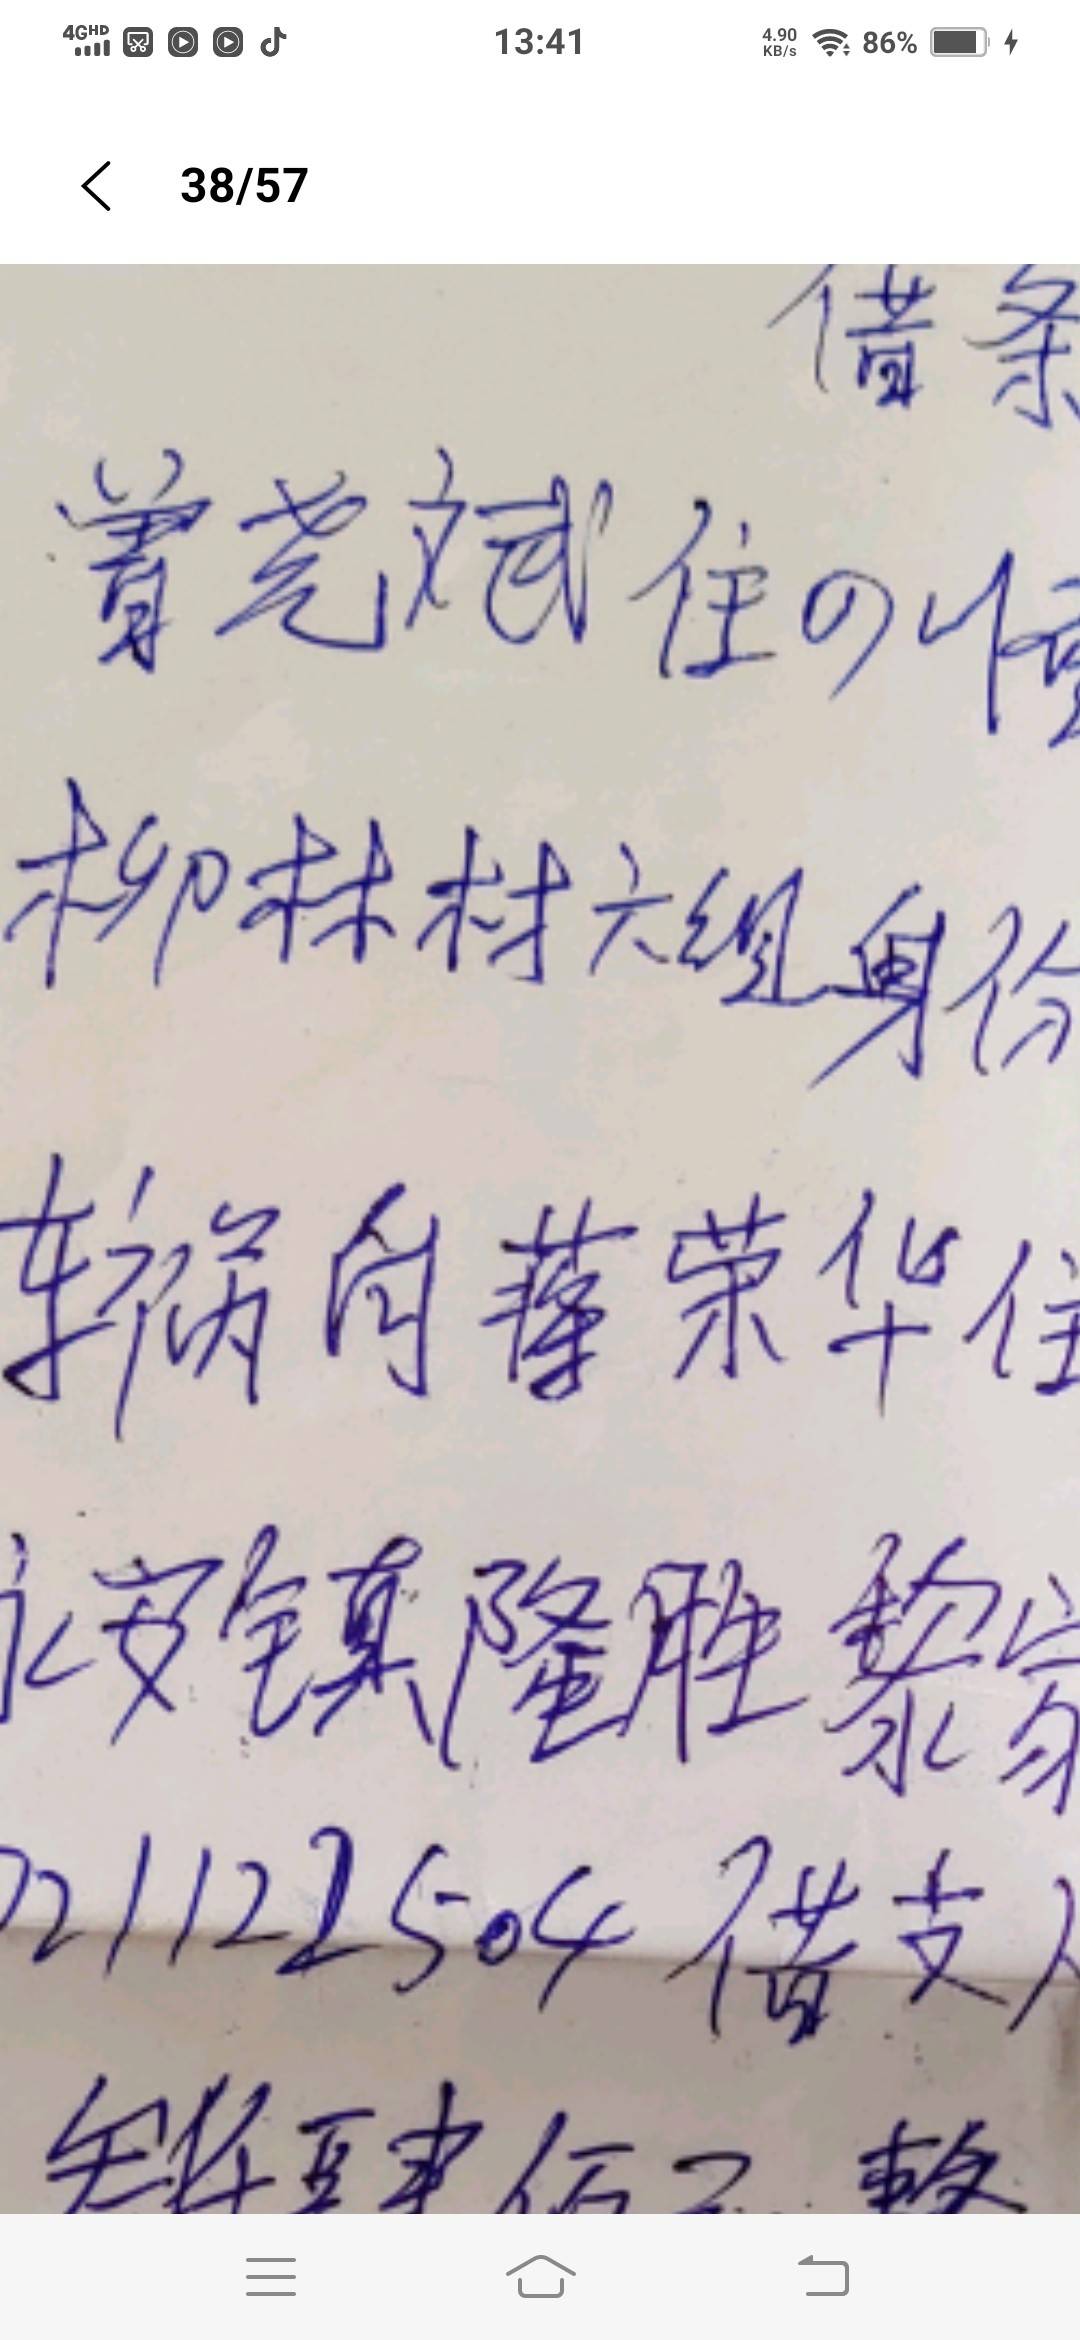 4GHD 13:41 4.90 KB/s 86%
38/57
借条
曾尧斌住四川
柳林村六组身份
车祸向蓬荣华住
永安镇隆胜黎家
221122504借支人
整